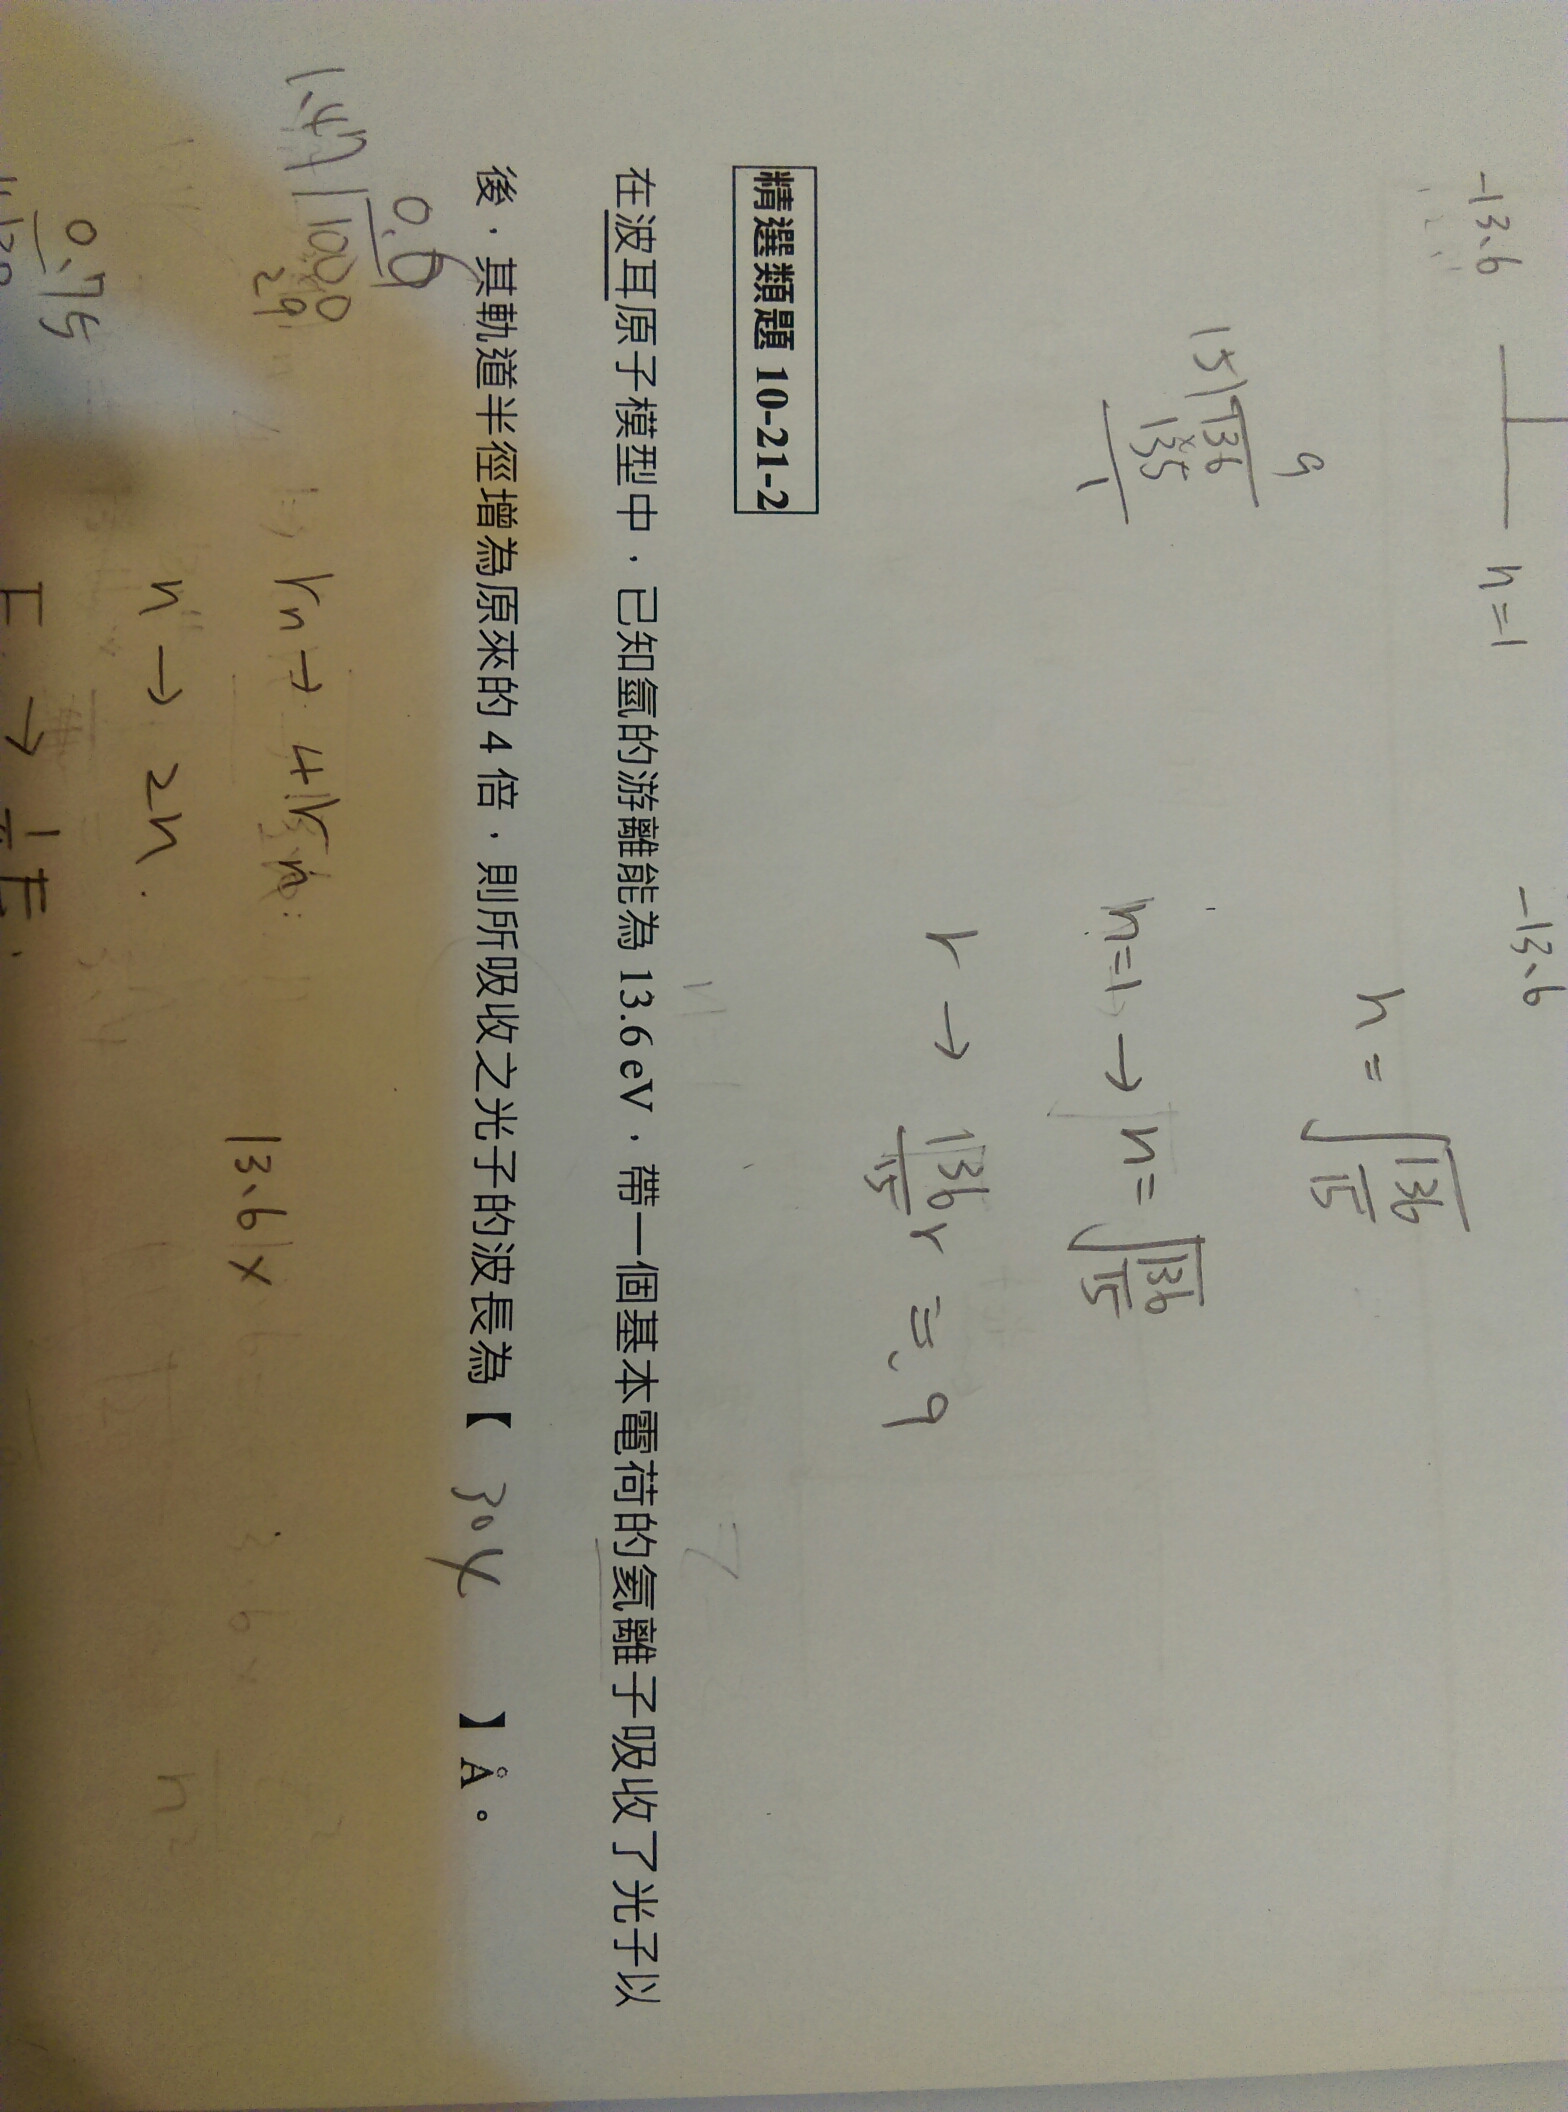 -13.6
n=1
-13.6
n = √136/15
9
15 136
135
1
n=1 → n = √136/15
r → 136/15 r ≒ 9
精選類題 10-21-2
在波耳原子模型中，已知氫的游離能為 13.6 eV，帶一個基本電荷的氦離子吸收了光子以
後，其軌道半徑增為原來的 4 倍，則所吸收之光子的波長為【 304 】Å。
0.6
1.47 100
29
rn → 4rn
13.6 x
n → 2n
0.75